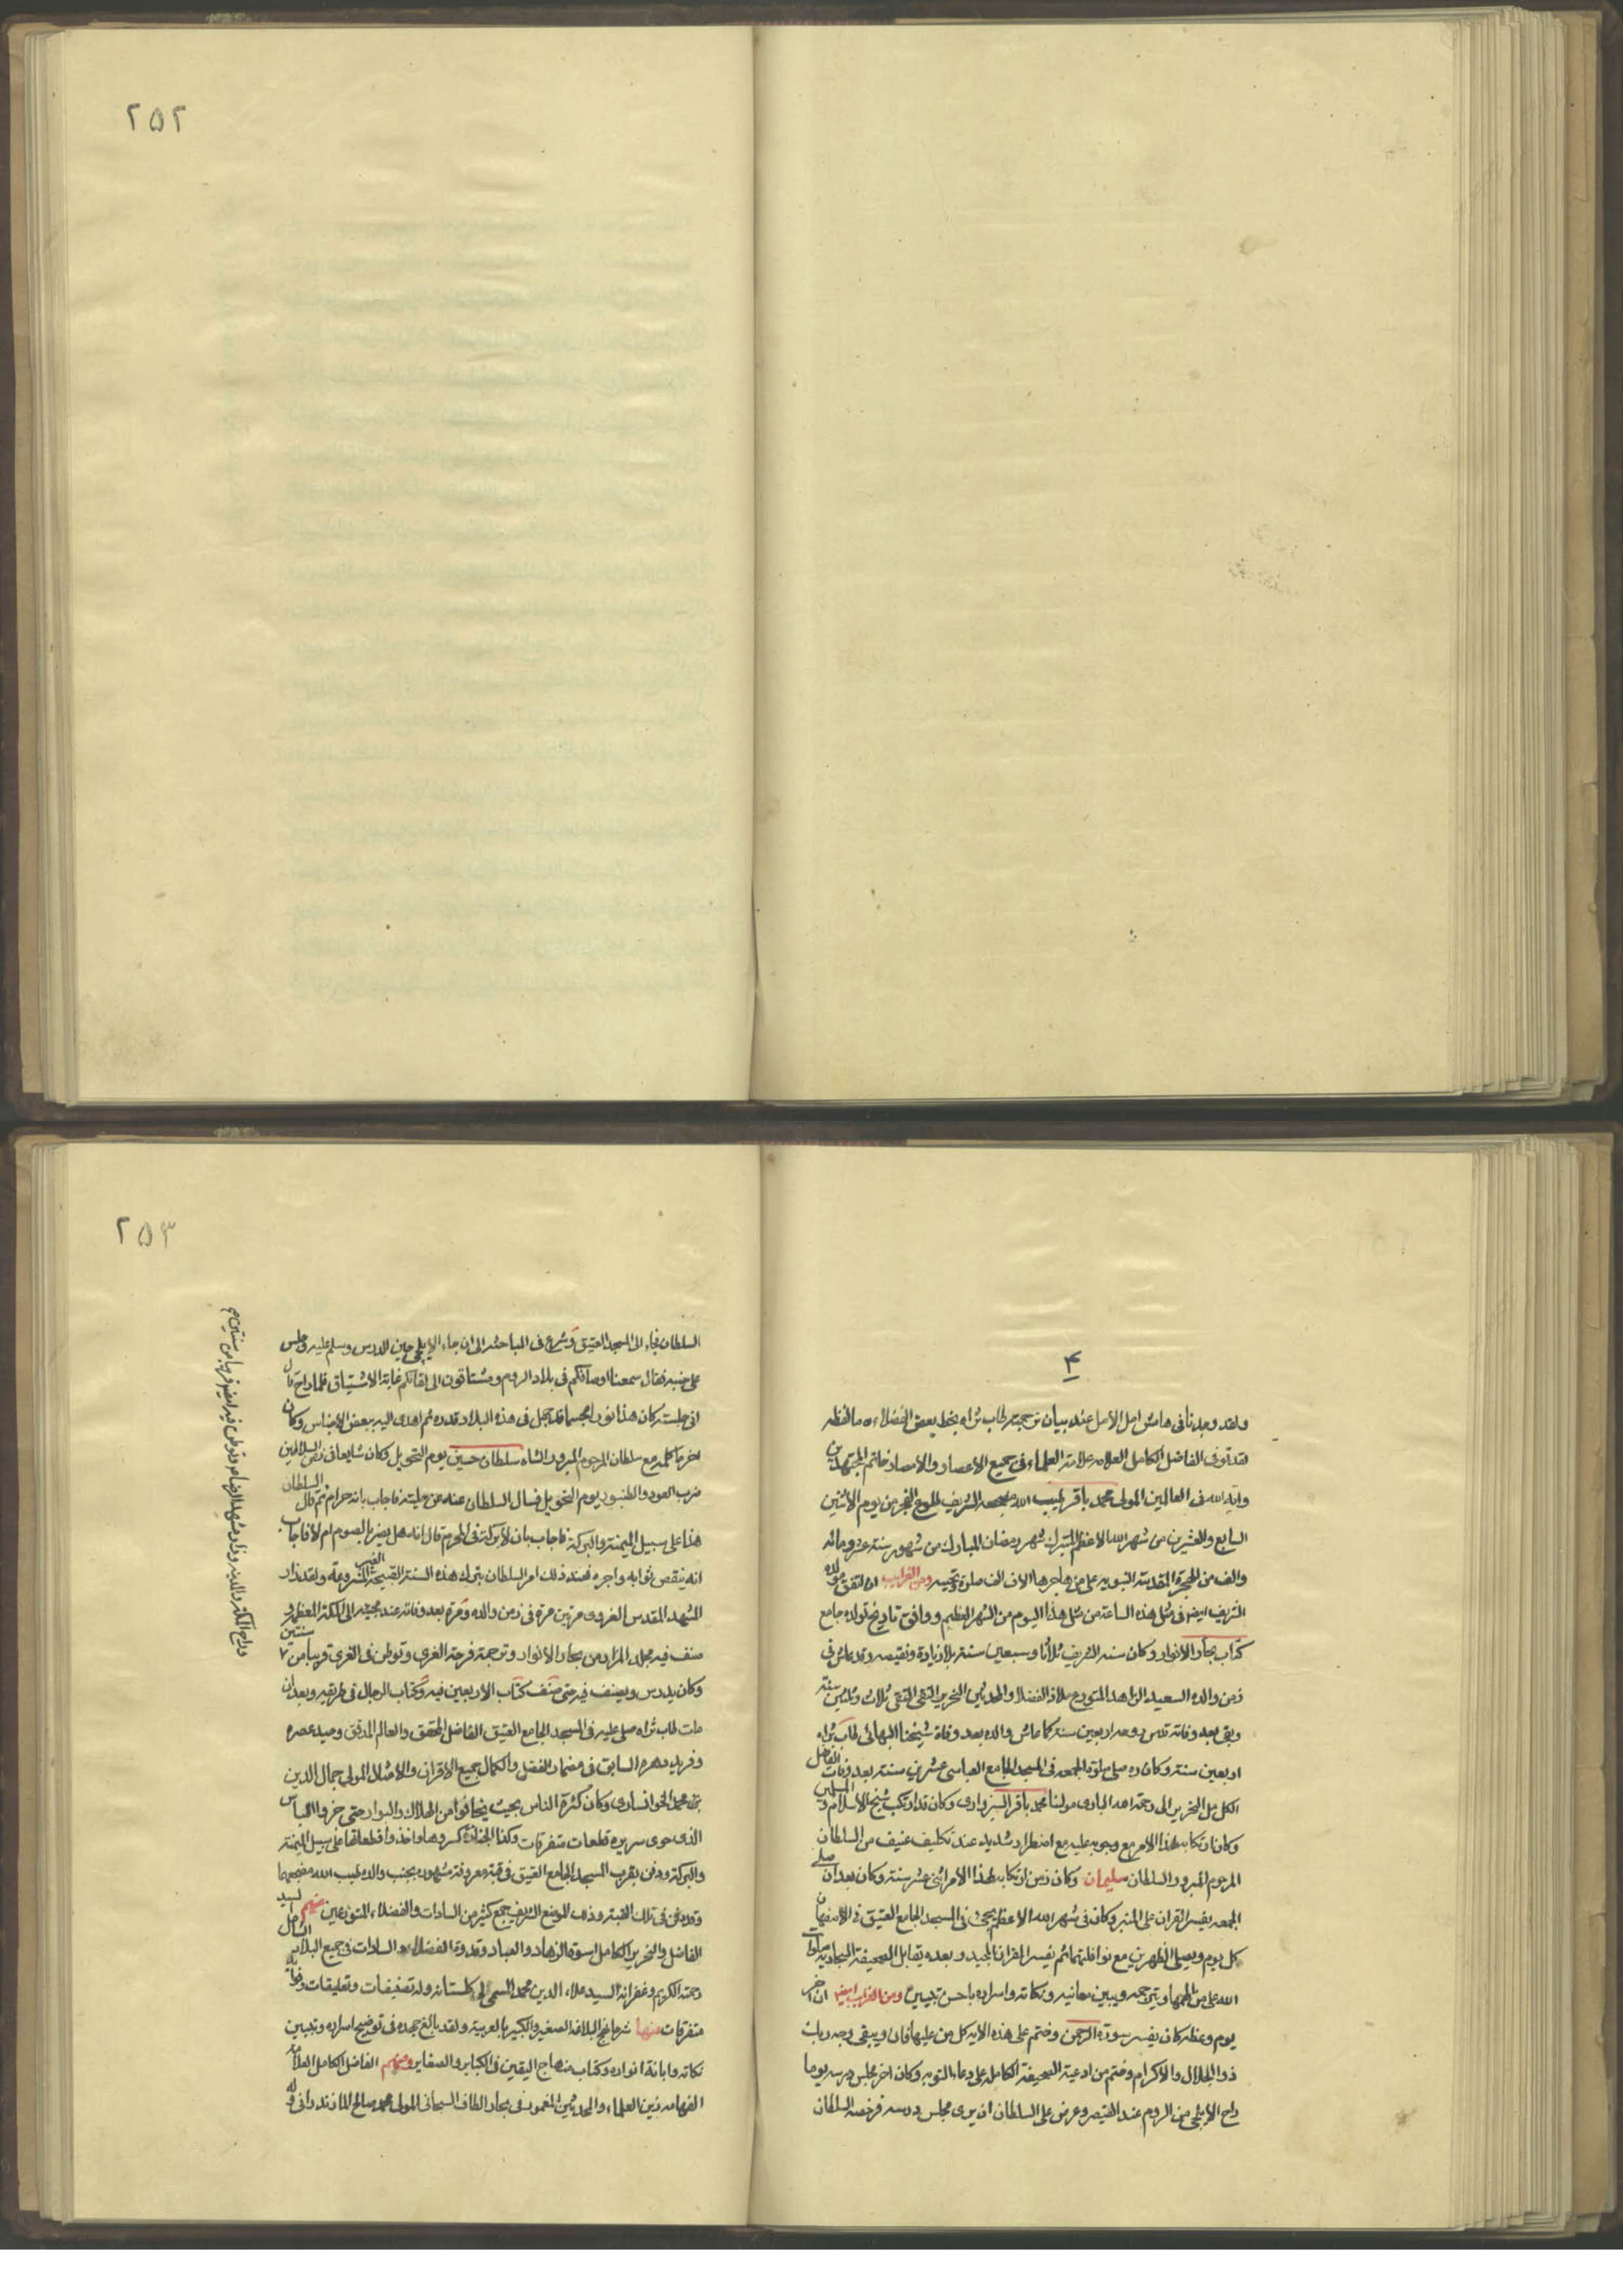 ٢٥٢
٢٥٣
۴
ولقد وجدنا فى هامش امل الآمل عند بيان ترجمته طاب ثراه بخط بعض الفضلاء ما لفظه
لقد توفى الفاضل الكامل العلامه علامة العلماء فى جميع الاعصار والامصار خاتم المجتهدين
وآية الله فى العالمين المولى محمد باقر طيب الله مضجعه الشريف طلوع الفجر من يوم الاثنين
السابع والعشرين من شهر الله الاعظم المتبرك شهر رمضان المبارك من شهور سنة عشر ومائه
والف من الهجرة المقدسة النبويه على من هاجرها الاف الف صلوة وتحيه ومن الغرايب ان اتفق مولده
الشريف ايضا فى مثل هذه الساعة من مثل هذا اليوم من الشهر العظيم ووافق تاريخ تولده جامع
كتاب بحار الانوار وكان سنه الشريف ثلاثا وسبعين سنة بلا زيادة ونقيصه وقد عاش فى
زمن والده السعيد الزاهد المتورع ملاذ الفضلاء والمحدثين النحرير التقى النقى ثلاث وثلثين سنة
وبقى بعد وفاته قدس روحه اربعين سنة كما عاش والده بعد وفاة شيخنا البهائى طاب ثراه
اربعين سنة وكان ره صلى صلوة الجمعه فى المسجد الجامع العباسى عشرين سنة بعد وفات الفاضل
الكامل النحرير الى رحمة الله البارى مولنا محمد باقر السبزوارى وكان قد ارتكب شيخ الاسلام و المسلمين
وكان ارتكابه لهذا الامر مع وجوبه عليه مع اضطرار شديد عند تكليف عنيف من السلطان
المرحوم المبرور السلطان سليمان وكان زمن ارتكابه لهذا الامر اثنى عشر سنة وكان بعد ان صلى
الجمعه يفسر القران على المنبر وكان فى شهر الله الاعظم يجئ فى المسجد الجامع العتيق فى الاصفهان
كل يوم ويصلى الظهرين مع نوافلهما ثم يفسر القران المجيد وبعده يقابل الصحيفة السجاديه صلوات
الله على من الهمها ويترجمه ويبين معانيه ونكاته واسراره باحسن تبيين ومن الغرايب ايضا ان اخر
يوم وعظه كان يفسر سورة الرحمن وختم على هذه الايه كل من عليها فان ويبقى وجه ربك
ذوالجلال والاكرام وختم من ادعية الصحيفة الكامله على دعاء التوبه وكان اخر مجلس درسه يوما
راح الايلچى من الروم عند القيصر وعرض على السلطان ان يرى مجلس درسه فرخصه السلطان
السلطان فجاء الى المسجد العتيق وشرع فى المباحثه الى ان جاء الايلچى حين الدرس وسلم عليه وجلس
على جنبه فقال سمعنا اوصافكم فى بلاد الروم ومشتاقون الى لقائكم غاية الاشتياق فلما راح قال
انى جلسته كان هذا نورا مجسما قد حل فى هذه البلاد قدره ثم اهدى اليه بعض الاجناس وكان
اخر ما كلمه مع سلطان المرحوم المبرور الشاه سلطان حسين يوم التحويل وكان شايعا فى زمن السلاطين
ضرب العود والطنبور يوم التحويل فسال السلطان عنه عن حليته فاجاب بانه حرام ثم قال السلطان
هذا على سبيل الميمنة والبركة فاجاب بان لا بركة فى المحرم قال انه هل يضر بالصوم ام لا فاجاب
انه ينقص ثوابه واجره فعند ذلك امر السلطان بترك هذه السنة القبيحة الغير المشروعة ولقد زار
المشهد المقدس الغروى مرتين مرة فى زمن والده ومرة بعد وفاته عند مجيئه الى المكة المعظمه و
صنف فيه مجلد المزار من بحار الانوار وترجمة فرحة الغرى وتوطن فى الغرى قريبا من سنتين
وكان يدرس ويصنف فيه حتى صنف كتاب الاربعين فيه وكتاب الرجال فى طريقه وبعد ان
مات طاب ثراه صلى عليه فى المسجد الجامع العتيق الفاضل المحقق والعالم المدقق وحيد عصره
وفريد دهره السابق فى مضمار الفضل والكمال جميع الاقران والامثال المولى جمال الدين
بن محمد الخوانسارى وكان كثرة الناس بحيث يخافوا من الهلاك والبوار حتى خرقوا اللباس
الذى حوى سريره قطعات متفرقات وكذا الجنازة كسروها واخذوا قطعاتها على سبيل الميمنة
والبركة ودفن بقرب المسجد الجامع العتيق فى قبة معروفة مشهوره بجنب والده طيب الله مضجعهما
وقد دفن فى تلك القبة وذلك الموضع الشريف جمع كثير من السادات والفضلاء المتورعين منهم السيد
الفاضل والنحرير الكامل اسوة الزهاد والعباد وقدوة الفضلاء والسادات فى جميع البلاد الشامل
رحمة الكريم وغفرانه السيد علاء الدين محمد المسمى بگلستانه وله تصنيفات وتعليقات
متفرقات منها شرحا نهج البلاغة الصغير والكبير بالعربية ولقد بالغ جهده فى توضيح اسراره وتبيين
نكاته وابانة انواره وكتاب منهاج اليقين فى الكباير والصغاير ومنهم الفاضل الكامل العلامه
الفهامه زين العلماء والمحدثين المغمور فى بحار الطاف السبحانى المولى محمد صالح المازندرانى وله